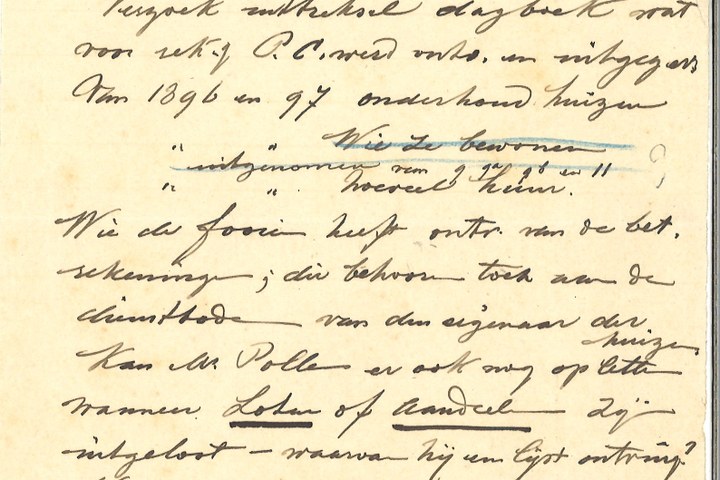 Verzoek uittreksel dagboek wat
voor rek.g P.C. werd ontv. en uitgegeven
Van 1896 en 97 onderhoud huizen
" " Wie ze bewonen
uitgenomen van 9 9a 9b en 11
" " hoeveel huur.
Wie de fooien heeft ontv. van de bet.
rekeningen; die behooren toch aan de
dienstbode van den eigenaar der
huizen
Kan Mr. Polle er ook nog op letten
wanneer Loten of Aandeelen zijn
uitgeloot – waarvan hij een lijst ontving?